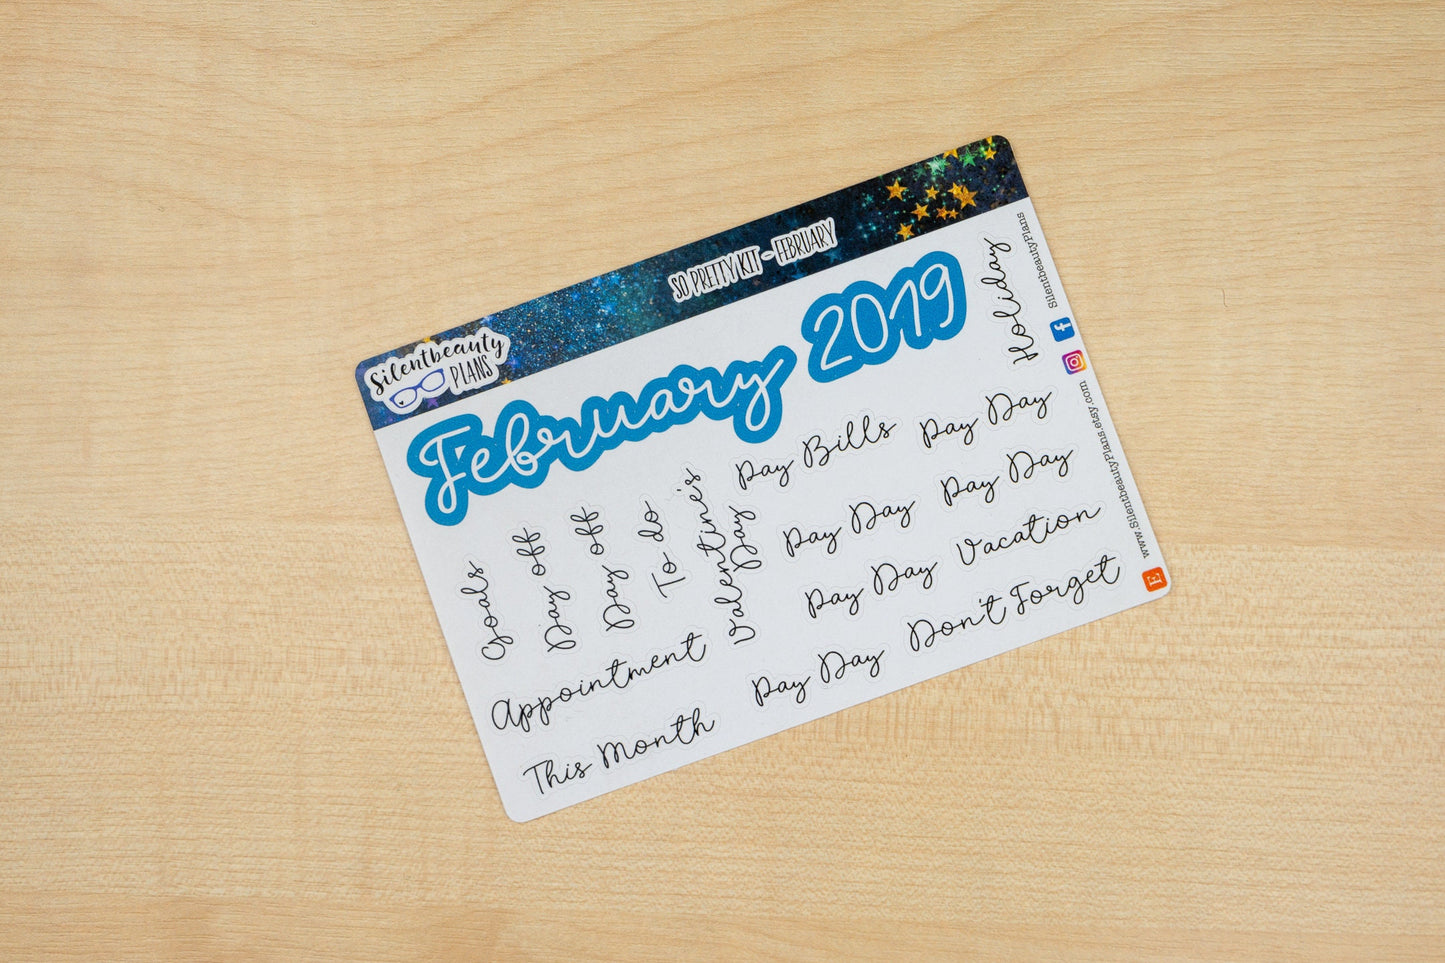 Silentbeauty
PLANS
SO PRETTY KIT - FEBRUARY
February 2019
Holiday
SilentbeautyPlans
www.SilentbeautyPlans.etsy.com
E
Goals
Day off
Day off
To do
Valentine's
Day
Pay Bills
Pay Day
Pay Day
Pay Day
Pay Day
Vacation
Appointment
Pay Day
Don't Forget
This Month